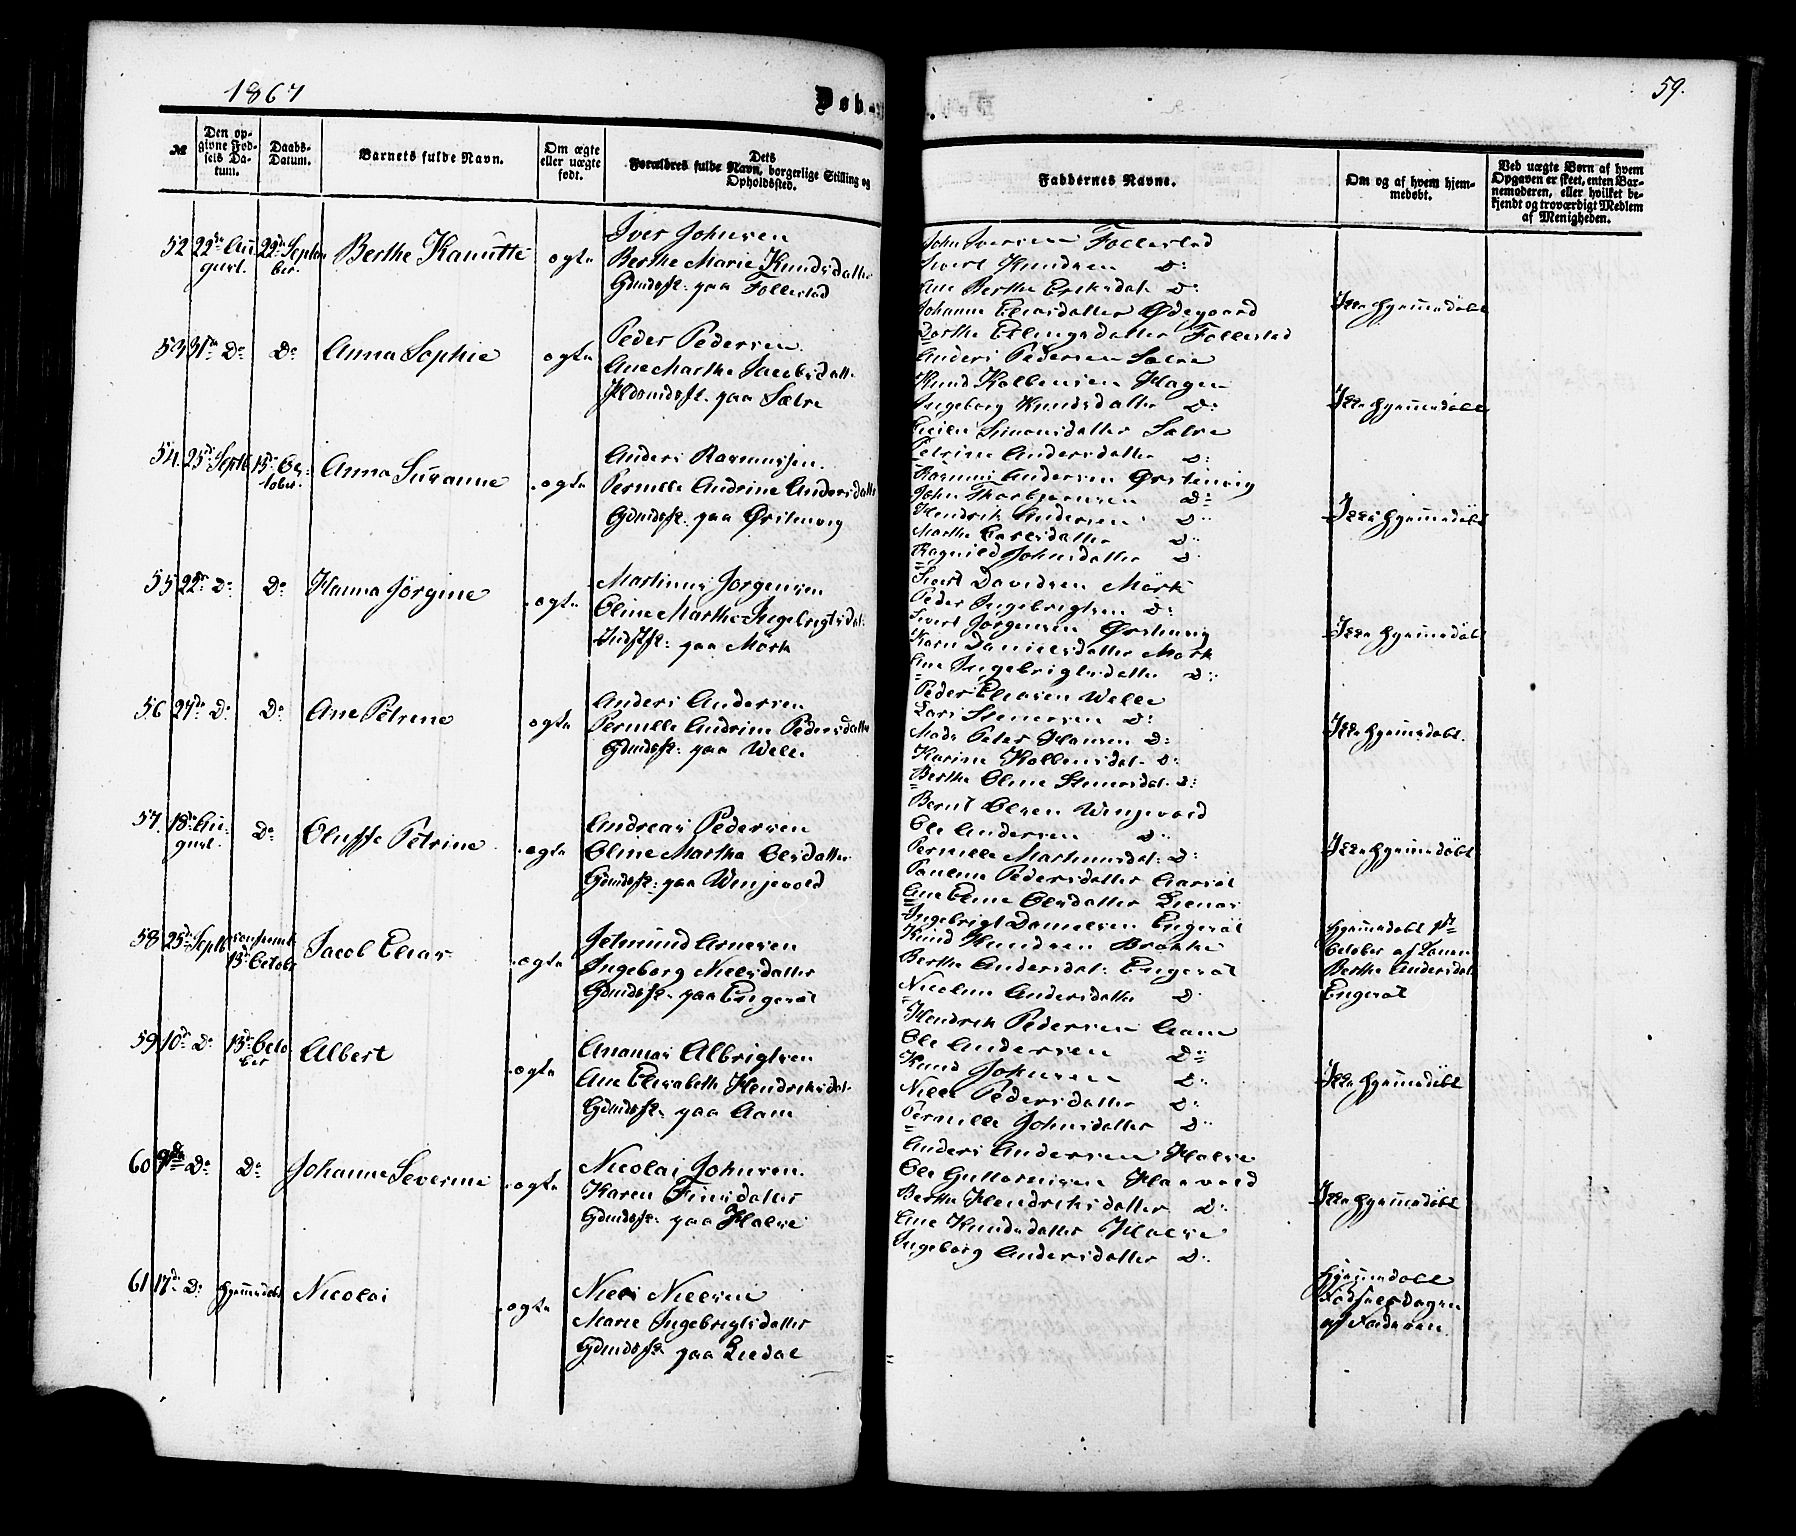 1867
Døb
59.
№
Den op-
givne Fød-
sels Da-
tum.
Daabs-
Datum.
Barnets fulde Navn.
Om ægte
eller uægte
født.
Dets
Forældres fulde Navn, borgerlige Stilling og
Opholdssted.
Faddernes Navne.
Om og af hvem hjem-
medøbt.
Ved uægte Børn af hvem
Opgaven er skeet, enten Bar-
nemoderen, eller hvilket be-
kjendt og troværdigt Medlem
af Menigheden.
52
22de Au
gust.
22de Septem
ber.
Berthe Kanutte
ægte
Iver Johnsen
Berthe Marie Knudsdatter
Gdmdsfk. paa Follestad
John Iversen Follestad
Sivert Knudsen Do
Ane Berthe Eriksdat. Do
Johanne Eliasdatter Ødegaard
Dorthe Erlingsdatter Follestad
Ikke hjemmedøbt
53
31te Do
Do
Anna Sophie
ægte
Peder Pedersen
Ane Marthe Jacobsdatt.
Hdsmdsfk. paa Sætre
Anders Pedersen Sætre
Knud Kolbensen Hagen
Ingeborg Knudsdatter Do
Simonsdatter Sætre
Petrine Andersdatter Do
Ikke hjemmedøbt
54.
25de Septb
13de Oc-
tober.
Anna Susanne
ægte
Anders Rasmussen.
Pernille Andrine Andersdatter
Gdmdsfk. paa Ørstenvig
Rasmus Andersen Ørstenvig
John Thorbjørnsen Do
Hendrik Andersen Do
Marthe Larsdatter Do
Ragnild Johnsdatter Do
Ikke hjemmedøbt
55
22de Do
Do
Hanna Jørgine
ægte
Martinus Jørgensen
Oline Marthe Ingebrigtsdat.
Indstfk. paa Mørk
Sivert Davidsen Mørk
Peder Ingebrigtsen Do
Sivert Jørgensen Ørstenvig
Karn Danielsdatter Mørk
Ane Ingebrigtsdatter Do
Ikke hjemmedøbt
56
27de Do
Do
Ane Petrine
ægte
Anders Andersen
Pernille Andrine Pedersdatter
Gdmdsfk. paa Welle
Peder Eliasen Welle
Lars Stenersen Do
Mads Peter Hansen Do
Karine Kolbensdat. Do
Berthe Oline Stenersdat. Do
Ikke hjemmedøbt.
57
18de Au-
gust.
Do
Oluffe Petrine
ægte
Andreas Pedersen
Oline Martha Olsdatter
Gdmdsfk. paa Winjevold
Bernt Olsen Winjevold
Ole Andersen Do
Pernille Martinusdat. Do
Pauline Pedersdatter Aarsæt
Ane Oline Olsdatter
Ikke hjemmedøbt
58
25de Septb
13de Octobr
Jacob Elias
ægte
Jetmund Arnesen
Ingeborg Nielsdatter
Gdmdsfk. paa Engesæt
Ingebrigt Danielsen Engesæt
Knud Knudsen Brakke
Berthe Andersdat. Engesæt
Nicoline Andersdatter Do
Hjemmedøbt 1ste
October af
Berthe Andersdat
Engesæt
59
10de Do
13de Octo
ber
Albert
ægte
Ananias Albrigtsen
Ane Elisabeth Hendriksdat.
Gdmdsfk. paa Aam
Hendrik Pedersen Aam
Ole Andersen Do
Knud Johnsen Do
Nille Pedersdatter Do
Pernille Johnsdatter Do
Ikke hjemmedøbt
60
9de Do
Do
Johanne Severine
ægte
Nicolai Johnsen
Karen Finsdatter
Gdmdsfk. paa Halse
Anders Andersen Halse
Ole Guttormsen Haavold
Berthe Hendriksdatter Do
Ane Knudsdatter Halse
Ingeborg Andersdatter Do
Ikke hjemmedøbt
61
17de Do
Hjemmedøbt
Nicolai
ægte
Niels Nielsen
Marie Ingebrigtsdatter
Gdmdsfk. paa Liedal
Hjemmedøbt
Fødselsdagen
af Faderen